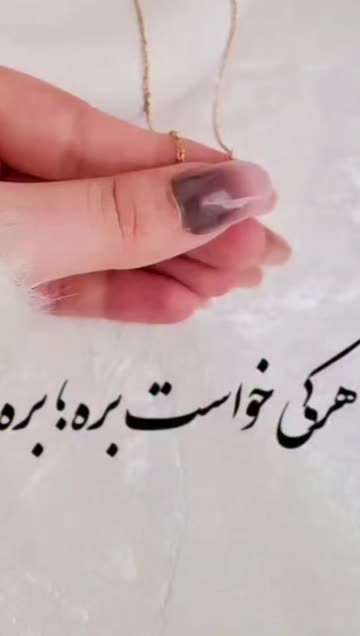 هرکی خواست بره؛ بره